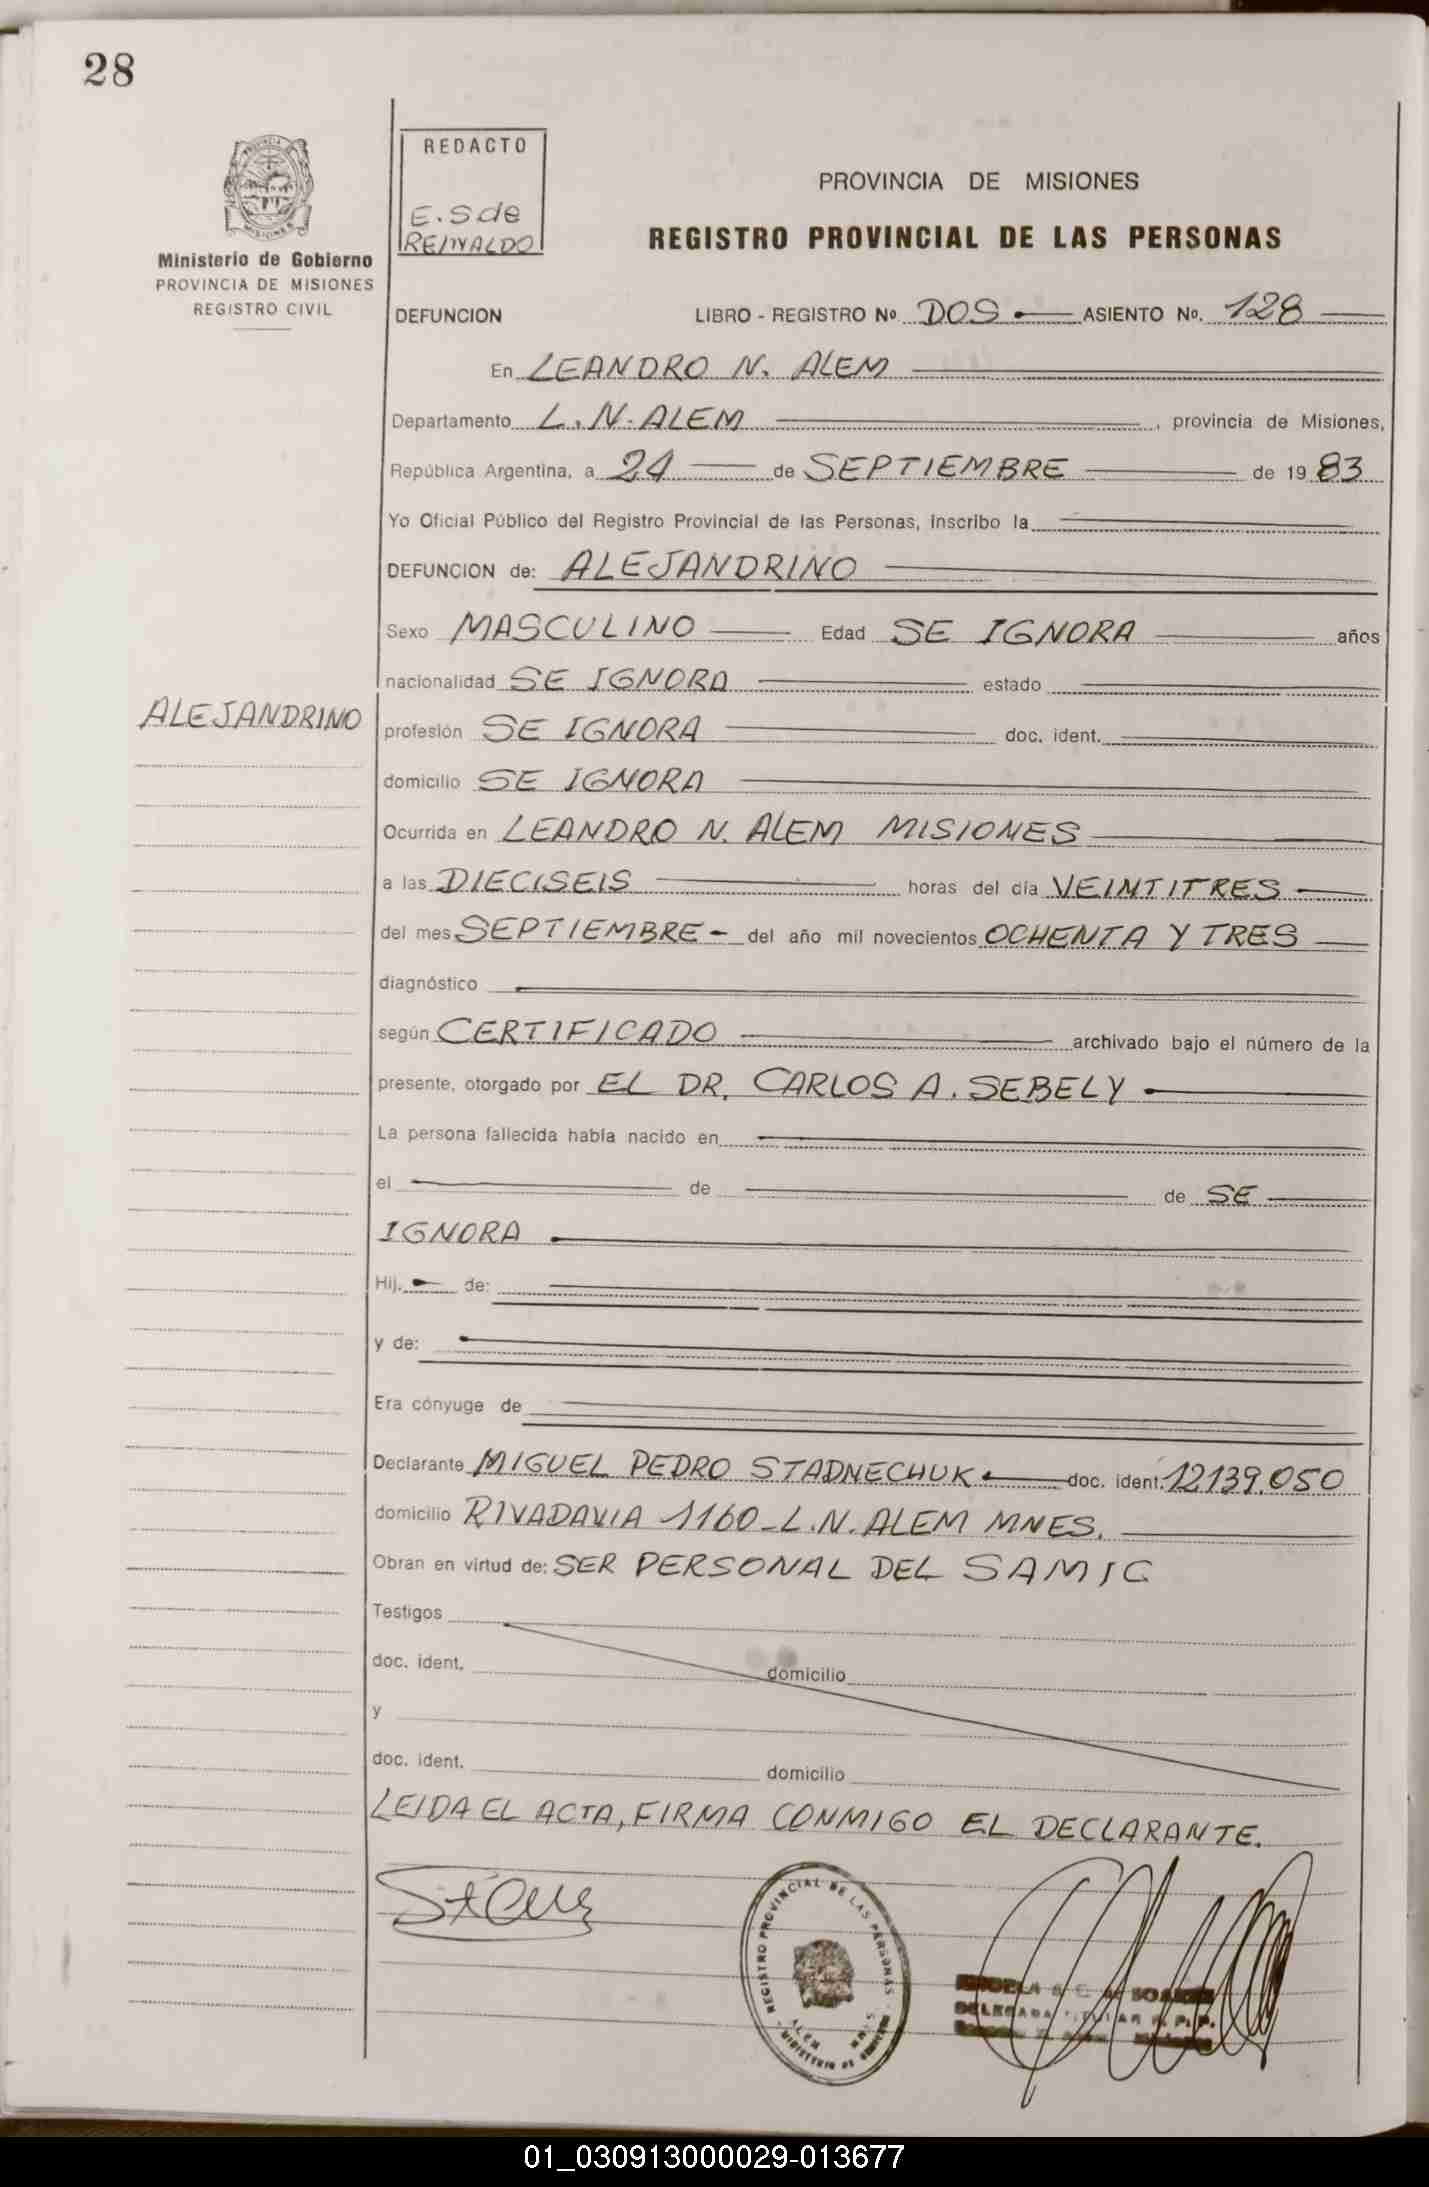 28
REDACTO
E. S de
REINALDO
Ministerio de Gobierno
PROVINCIA DE MISIONES
REGISTRO CIVIL
PROVINCIA DE MISIONES
REGISTRO PROVINCIAL DE LAS PERSONAS
DEFUNCION LIBRO - REGISTRO Nº DOS ASIENTO Nº. 128
En LEANDRO N. ALEM
Departamento L. N. ALEM, provincia de Misiones,
República Argentina, a 24 de SEPTIEMBRE de 19 83
Yo Oficial Público del Registro Provincial de las Personas, inscribo la
DEFUNCION de: ALEJANDRINO
Sexo MASCULINO Edad SE IGNORA años
nacionalidad SE IGNORA estado
ALEJANDRINO
profesión SE IGNORA doc. ident.
domicilio SE IGNORA
Ocurrida en LEANDRO N. ALEM MISIONES
a las DIECISEIS horas del día VEINTITRES
del mes SEPTIEMBRE - del año mil novecientos OCHENTA Y TRES
diagnóstico
según CERTIFICADO archivado bajo el número de la
presente, otorgado por EL DR. CARLOS A. SEBELY
La persona fallecida había nacido en
el de de SE
IGNORA
Hij. de:
y de:
Era cónyuge de
Declarante MIGUEL PEDRO STADNECHUK doc. ident. 12139.050
domicilio RIVADAVIA 1160 - L.N. ALEM MNES.
Obran en virtud de: SER PERSONAL DEL SAMIC
Testigos
doc. ident. domicilio
y
doc. ident. domicilio
LEIDA EL ACTA, FIRMA CONMIGO EL DECLARANTE.
REGISTRO PROVINCIAL DE LAS PERSONAS
ALEM MNES
MINISTERIO DE GOBIERNO
01_030913000029-013677